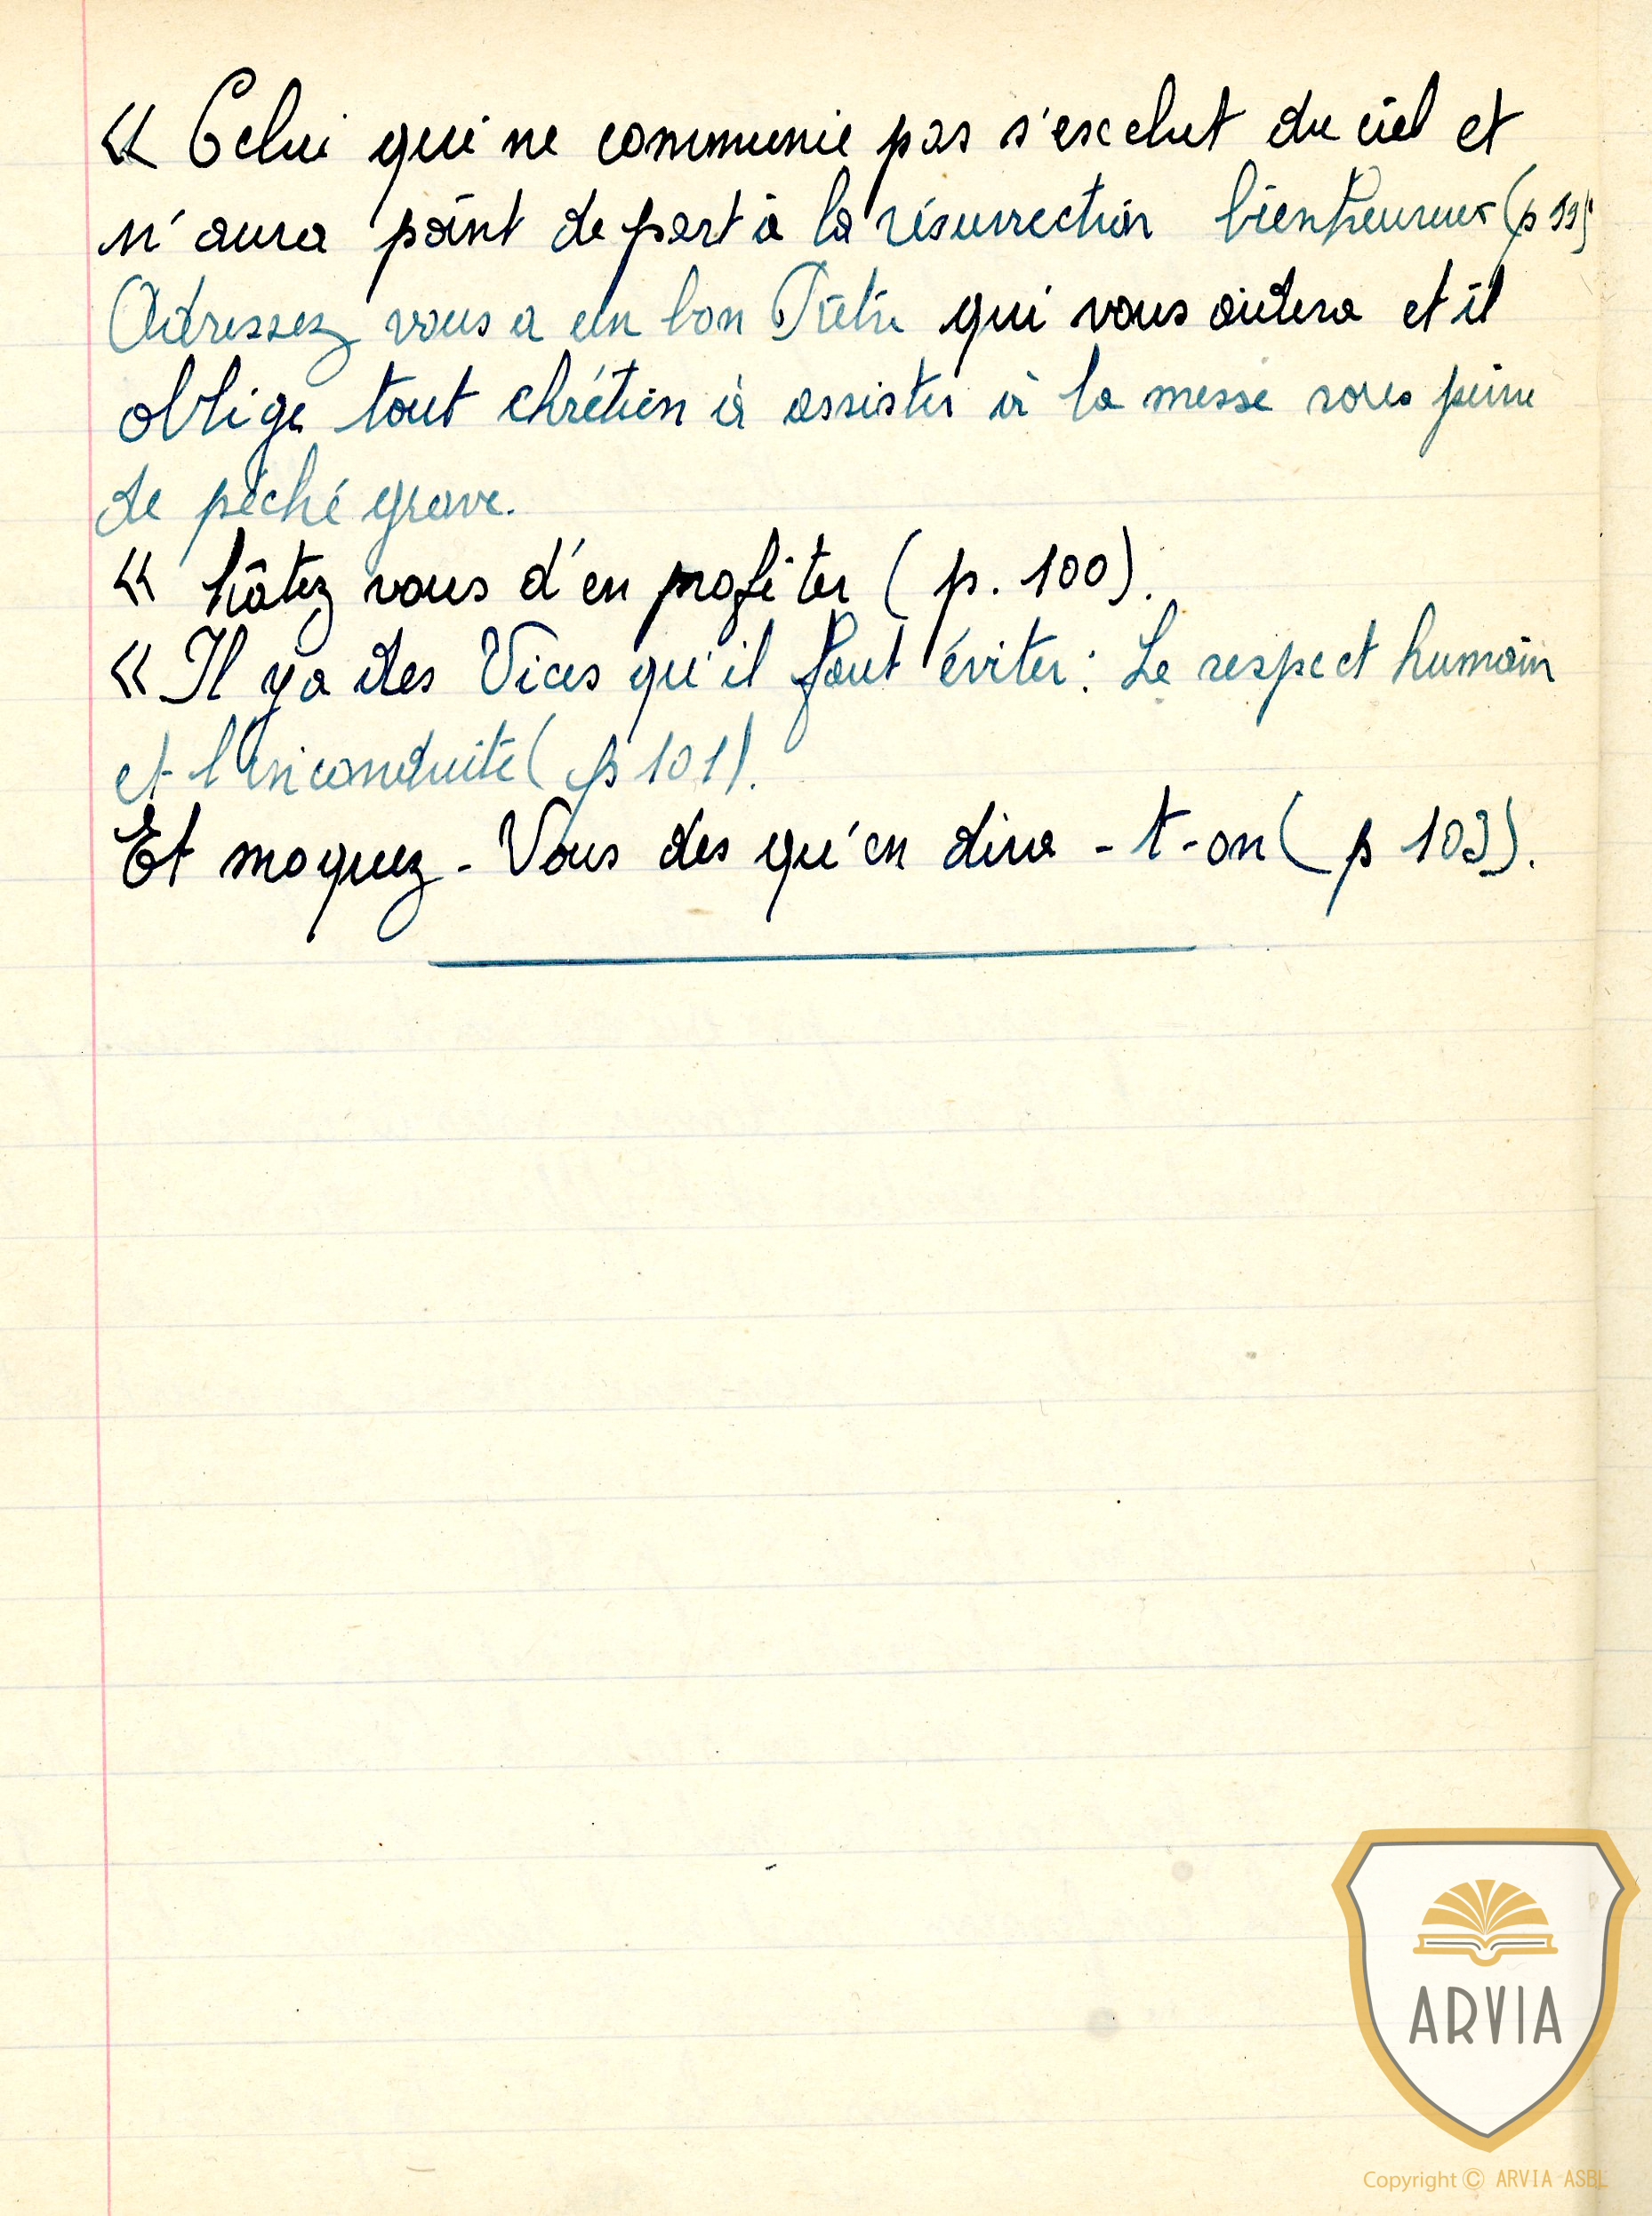 « Celui qui ne communie pas s'exclut du ciel et
n'aura point de part à la résurrection bienheureux (p 99)
Adressez vous a un bon Prêtre qui vous aidera et il
oblige tout chrétien à assister à la messe sous peine
de péché grave.
« hâtez vous d'en profiter (p. 100).
« Il y a des Vices qu'il faut éviter : Le respect humain
et l'inconduite (p 101).
Et moquez-Vous des qu'en dira-t-on (p 103).
ARVIA
Copyright © ARVIA ASBL